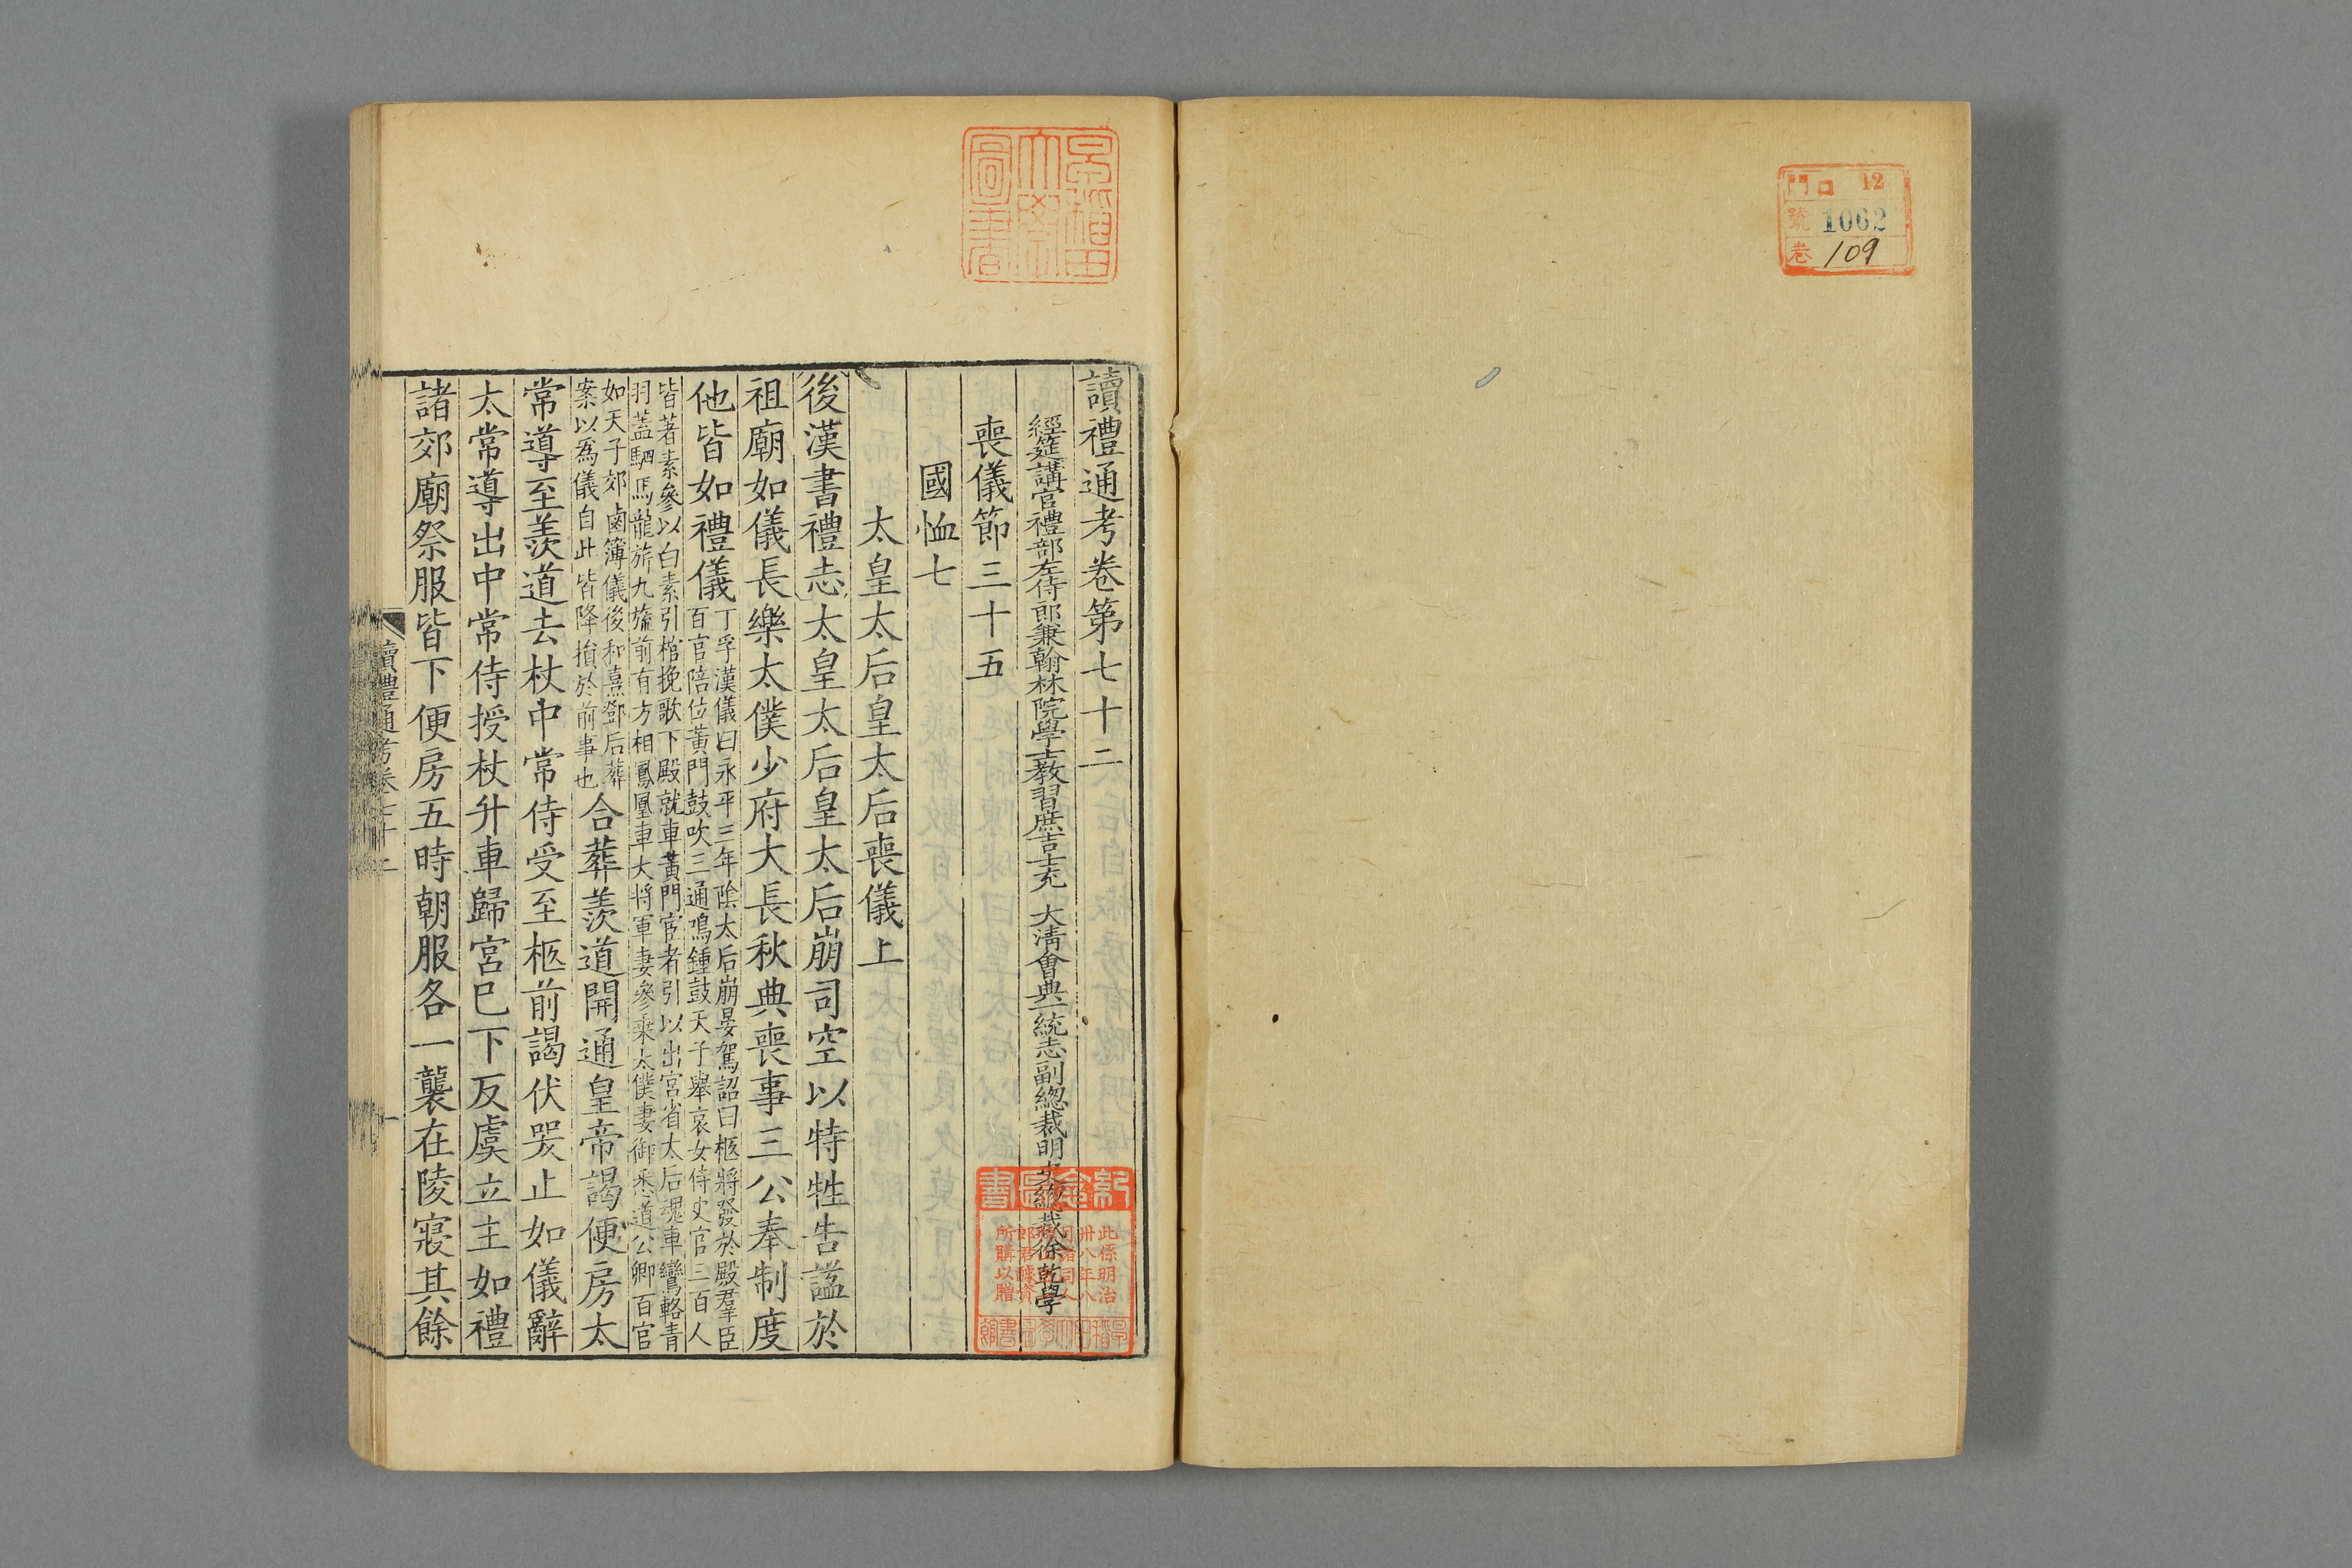 門 口 12
號 1062
卷 109
早稻田
大學
圖書
讀禮通考卷第七十二
經筵講官禮部左侍郎兼翰林院學士教習庶吉士充 大清會典一統志副總裁明史總裁徐乾學
喪儀節三十五
國恤七
太皇太后皇太后喪儀上
後漢書禮志太皇太后皇太后崩司空以特牲告謚於
祖廟如儀長樂太僕少府大長秋典喪事三公奉制度
他皆如禮儀
丁孚漢儀曰永平三年陰太后崩晏駕詔曰柩將發於殿羣臣
百官陪位黃門鼓吹三通鳴鍾鼓天子舉哀女侍史官三百人
皆著素參以白素引棺挽歌下殿就車黃門宦者引以出宮省太后魂車鸞輅青
羽蓋駟馬龍旂九旒前有方相鳳凰車大將軍妻參乘太僕妻御悉道公卿百官
如天子郊鹵簿儀後和熹鄧后葬
案以爲儀自此皆降損於前事也
合葬羨道開通皇帝謁便房太
常導至羨道去杖中常侍受至柩前謁伏哭止如儀辭
太常導出中常侍授杖升車歸宮已下反虞立主如禮
諸郊廟祭服皆下便房五時朝服各一襲在陵寢其餘
讀禮通考卷七十二
一
此係明治
卅八年八
所購以贈